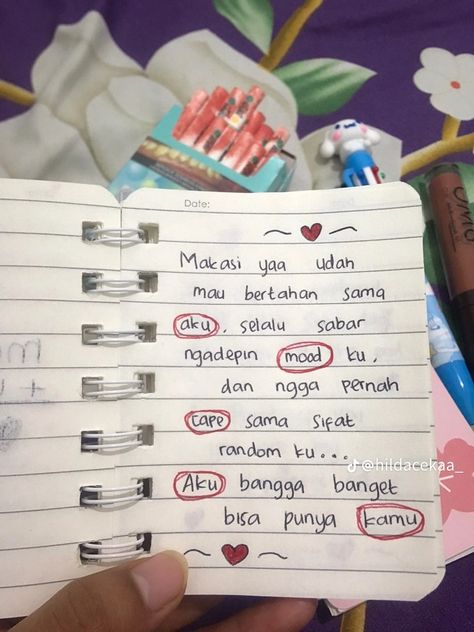 Date:
Makasi yaa udah
mau bertahan sama
aku, selalu sabar
ngadepin mood ku,
dan ngga pernah
cape sama sifat
random ku...
@hildacekaa_
Aku bangga banget
bisa punya kamu
OMG